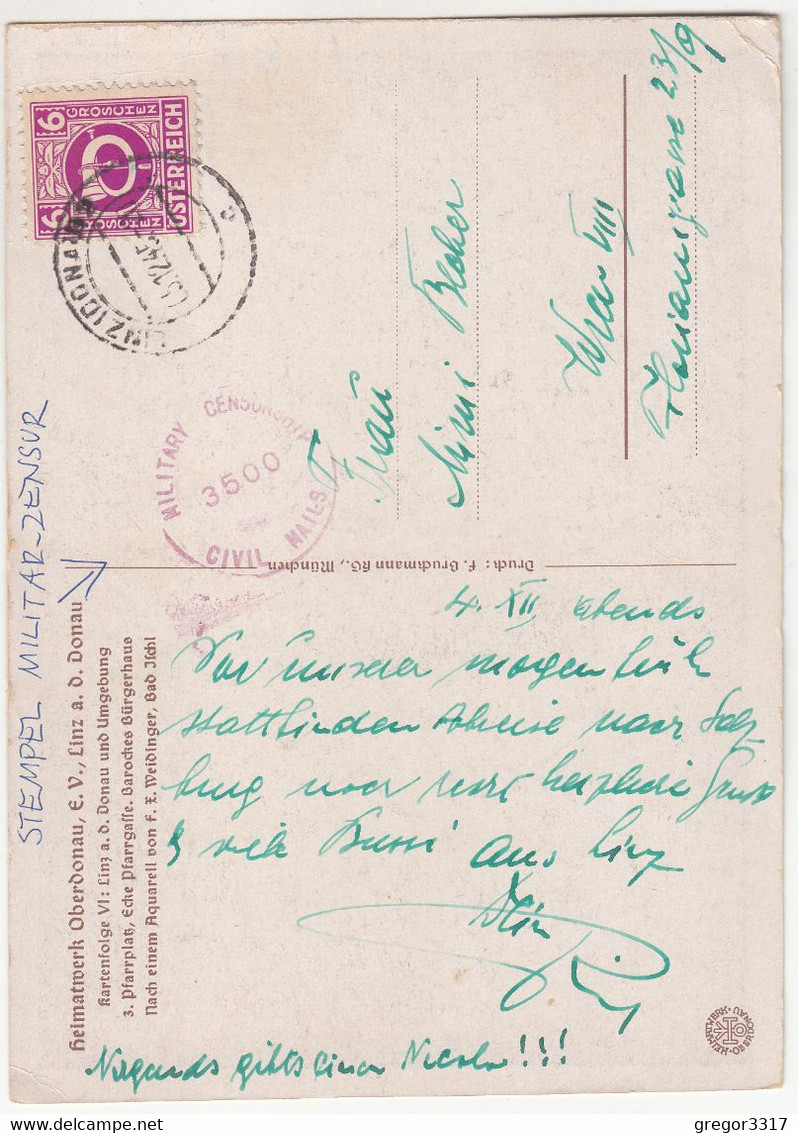 6 GROSCHEN 6
GROSCHEN
ÖSTERREICH
LINZ (DONAU)
MILITARY CENSORSHIP
3500
CIVIL MAILS
STEMPEL MILITÄR-ZENSUR
Frau
Mimi
Wien VIII
Floriangasse 23/9
Druck: F. Bruckmann KG., München
Heimatwerk Oberdonau, E. V., Linz a. d. Donau
Kartenfolge VI: Linz a. d. Donau und Umgebung
3. Pfarrplatz, Ecke Pfarrgasse. Barockes Bürgerhaus
Nach einem Aquarell von F. X. Weidinger, Bad Ischl
4. XII abends
Vor unserer morgen früh
stattfinden Abreise nach Salz-
burg noch recht herzliche Grüsse
& viele Bussi aus Linz
Dein
Nirgends gibts einen Nicolo!!!
HEIMATWERK · OBERDONAU
gregor3317